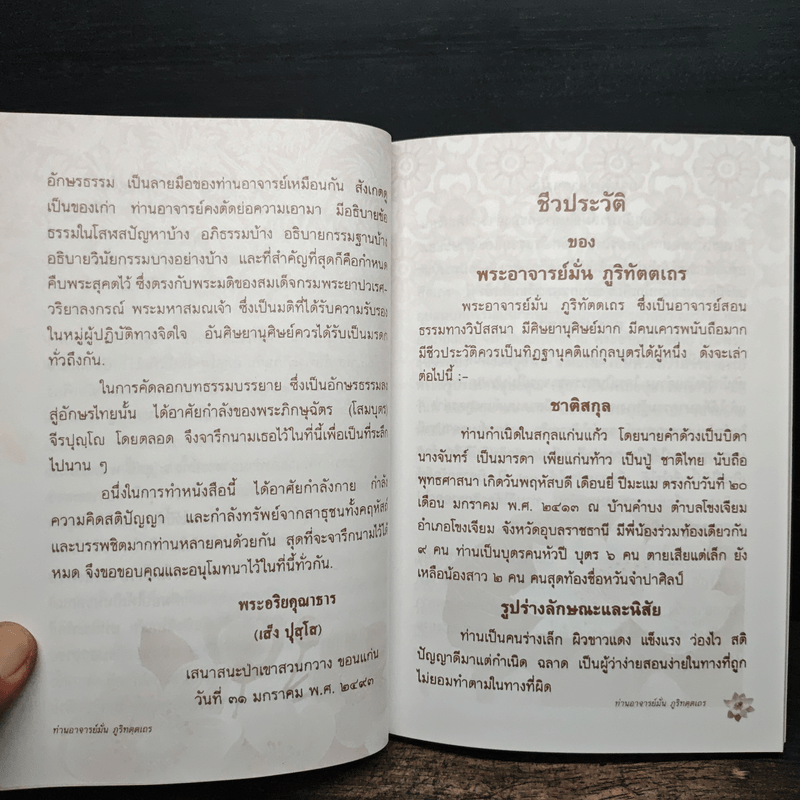 อักษรธรรม เป็นลายมือของท่านอาจารย์เหมือนกัน สังเกตดู
เป็นของเก่า ท่านอาจารย์คงตัดย่อความเอามา มีอธิบายข้อ
ธรรมในโสฬสปัญหาบ้าง อภิธรรมบ้าง อธิบายกรรมฐานบ้าง
อธิบายวินัยกรรมบางอย่างบ้าง และที่สำคัญที่สุดก็คือกำหนด
คืบพระสุคตไว้ ซึ่งตรงกับพระมติของสมเด็จกรมพระยาปวเรศ-
วริยาลงกรณ์ พระมหาสมณเจ้า ซึ่งเป็นมติที่ได้รับความรับรอง
ในหมู่ผู้ปฏิบัติทางจิตใจ อันศิษยานุศิษย์ควรได้รับเป็นมรดก
ทั่วถึงกัน.
ในการคัดลอกบทธรรมบรรยาย ซึ่งเป็นอักษรธรรมลง
สู่อักษรไทยนั้น ได้อาศัยกำลังของพระภิกษุฉัตร (โสมบุตร)
จีรปุญฺโญ โดยตลอด จึงจารึกนามเธอไว้ในที่นี้เพื่อเป็นที่ระลึก
ไปนาน ๆ
อนึ่งในการทำหนังสือนี้ ได้อาศัยกำลังกาย กำลัง
ความคิดสติปัญญา และกำลังทรัพย์จากสาธุชนทั้งคฤหัสถ์
และบรรพชิตมากท่านหลายคนด้วยกัน สุดที่จะจารึกนามไว้ได้
หมด จึงขอขอบคุณและอนุโมทนาไว้ในที่นี้ทั่วกัน.
พระอริยคุณาธาร
(เส็ง ปุสฺโส)
เสนาสนะป่าเขาสวนกวาง ขอนแก่น
วันที่ ๓๑ มกราคม พ.ศ. ๒๔๙๓
ท่านอาจารย์มั่น ภูริทตฺตเถร
ชีวประวัติ
ของ
พระอาจารย์มั่น ภูริทัตตเถร
พระอาจารย์มั่น ภูริทัตตเถร ซึ่งเป็นอาจารย์สอน
ธรรมทางวิปัสสนา มีศิษยานุศิษย์มาก มีคนเคารพนับถือมาก
มีชีวประวัติควรเป็นทิฏฐานุคติแก่กุลบุตรได้ผู้หนึ่ง ดังจะเล่า
ต่อไปนี้ :-
ชาติสกุล
ท่านกำเนิดในสกุลแก่นแก้ว โดยนายคำด้วงเป็นบิดา
นางจันทร์ เป็นมารดา เพียแก่นท้าว เป็นปู่ ชาติไทย นับถือ
พุทธศาสนา เกิดวันพฤหัสบดี เดือนยี่ ปีมะแม ตรงกับวันที่ ๒๐
เดือน มกราคม พ.ศ. ๒๔๑๓ ณ บ้านคำบง ตำบลโขงเจียม
อำเภอโขงเจียม จังหวัดอุบลราชธานี มีพี่น้องร่วมท้องเดียวกัน
๙ คน ท่านเป็นบุตรคนหัวปี บุตร ๖ คน ตายเสียแต่เล็ก ยัง
เหลือน้องสาว ๒ คน คนสุดท้องชื่อหวันจำปาศิลป์
รูปร่างลักษณะและนิสัย
ท่านเป็นคนร่างเล็ก ผิวขาวแดง แข็งแรง ว่องไว สติ
ปัญญาดีมาแต่กำเนิด ฉลาด เป็นผู้ว่าง่ายสอนง่ายในทางที่ถูก
ไม่ยอมทำตามในทางที่ผิด
ท่านอาจารย์มั่น ภูริทตฺตเถร